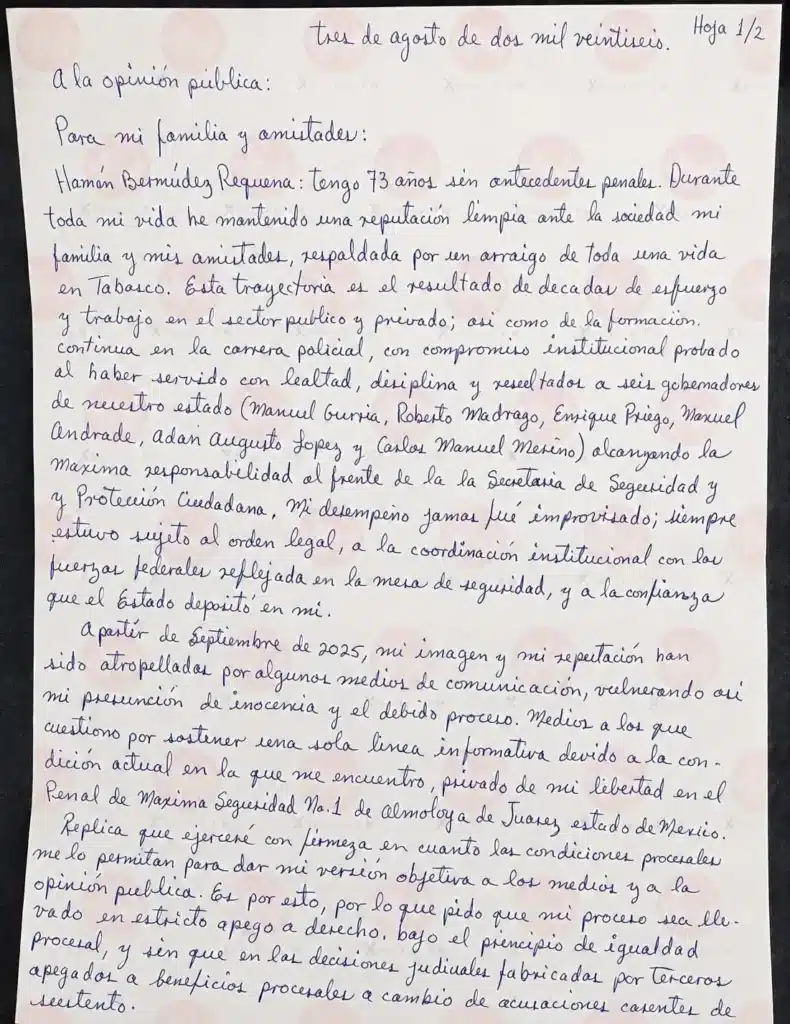 tres de agosto de dos mil veintiseis. Hoja 1/2
A la opinión pública:
Para mi familia y amistades:
Hamón Bermúdez Requena: tengo 73 años sin antecedentes penales. Durante
toda mi vida he mantenido una reputación limpia ante la sociedad mi
familia y mis amistades, respaldada por un arraigo de toda una vida
en Tabasco. Esta trayectoria es el resultado de decadas de esfuerzo
y trabajo en el sector publico y privado; asi como de la formación.
continua en la carrera policial, con compromiso institucional probado
al haber servido con lealtad, disiplina y resultados a seis gobernadores
de nuestro estado (Manuel Gurria, Roberto Madrago, Enrique Priego, Manuel
Andrade, Adan Augusto Lopez y Carlos Manuel Merino) alcanzando la
Maxima responsabilidad al frente de la la Secretaria de Seguridad y
y Protección Ciudadana, Mi desempeño jamas fué improvisado; siempre
estuvo sujeto al orden legal, a la coordinación institucional con las
fuerzas federales reflejada en la mesa de seguridad, y a la confianza
que el Estado depositó en mi.
A partir de Septiembre de 2025, mi imagen y mi reputación han
sido atropelladas por algunos medios de comunicación, vulnerando asi
mi presunción de inocencia y el debido proceso. Medios a los que
cuestiono por sostener una sola linea informativa devido a la con-
dición actual en la que me encuentro, privado de mi libertad en el
Penal de Maxima Seguridad No.1 de Almoloya de Juarez estado de Mexico.
Replica que ejerceré con firmeza en cuanto las condiciones procesales
me lo permitan para dar mi versión objetiva a los medios y a la
opinión publica. Es por esto, por lo que pido que mi proceso sea lle-
vado en estricto apego a derecho. bajo el principio de igualdad
procesal, y sin que en las decisiones judiuales fabricadas por terceros
apegados a beneficios procesales a cambio de acusaciones carentes de
sustento.